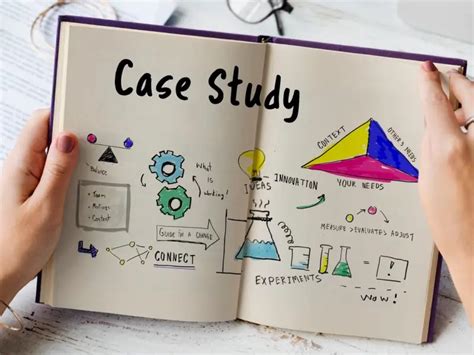 Case Study
Balance
Team
Meetings
Content
WHAT
IS
working!
GUIDE IN A CHANGE
CONNECT
IDEAS
INNOVATION
EXPERIMENTS
CONTEXT
OTHER'S NEEDS
YOUR NEEDS
MEASURE > EVALUATE > ADJUST
!
WOW!